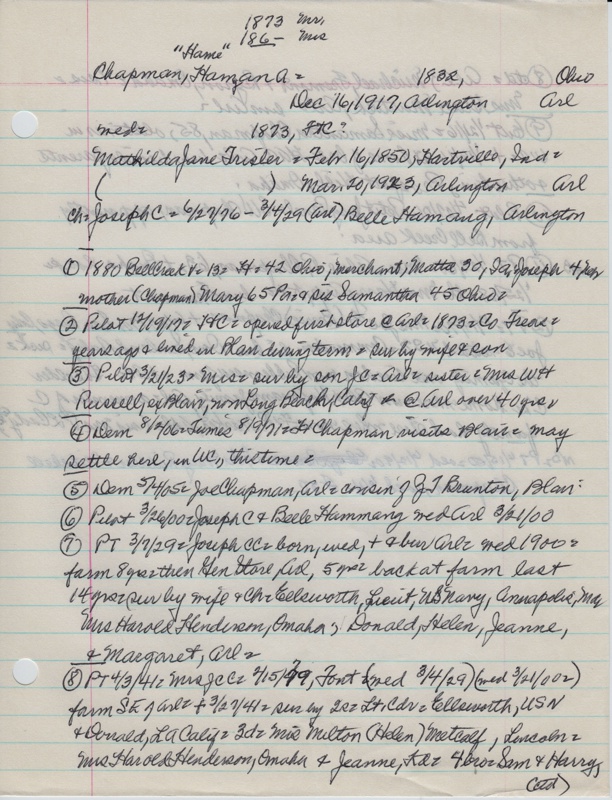 1873 Mr.
186- Mrs
"Hame"
Chapman, Hamzan A = 1832, Ohio
Dec 16, 1917, Arlington Arl
med = 1873, HC?
Mathilda Jane Trisler = Febr 16, 1850, Hartville, Ind =
( ) Mar. 20, 1923, Arlington Arl
ch = Joseph C = 6/27/76 - 3/4/29 (Arl) Belle Hamang, Arlington
① 1880 Bellcreek V = 13 = H = 42 Ohio, merchant; Matta 30, Ia; Joseph 4, Nebr
mother (Chapman) Mary 65 Pa = & sis Samantha 45 Ohio =
② Pilot 12/19/17 = HC = opened first store @ Arl = 1873 = Co Treas =
years ago & lived in Blair during term = sur by wife & son
③ Pilot 3/21/23 = Mrs = sur by son JC = Arl = sister = Mrs WH
Russell, ex Blair, now Long Beach, Calif & @ Arl over 40 yrs
④ Dem 8/2/06 = Times 8/9/71 = Chapman visits Blair = may
settle here, in WC, this time =
⑤ Dem 5/4/05 = Joe Chapman, Arl = cousin of Brunton, Blair:
⑥ Pilot 3/26/00 = Joseph C & Belle Hammang med Arl 3/21/00
⑦ PT 3/7/29 = Joseph CC = born, wed, + & bur Arl = med 1900 =
farm 8 yrs = then Gen Store, Arl, 5 yrs = back at farm last
14 yrs = sur by wife & Ch = Ellsworth, Lieut, US Navy, Annapolis, Md
Mrs Harold Henderson, Omaha; Donald, Helen, Jeanne,
& Margaret, Arl =
⑧ PT 4/3/41 = Mrs JCC = 2/15/79, Font (wed 3/4/29) (med 3/21/00 =)
farm SE of Arl = + 3/27/41 = sur by 2s = Lt. Cdr = Ellsworth, USN
& Donald, LA Calif = 3d = Mrs Milton (Helen) Metcalf, Lincoln =
Mrs Harold Henderson, Omaha & Jeanne, = 4 bro = Sam & Harry,
(ctd)